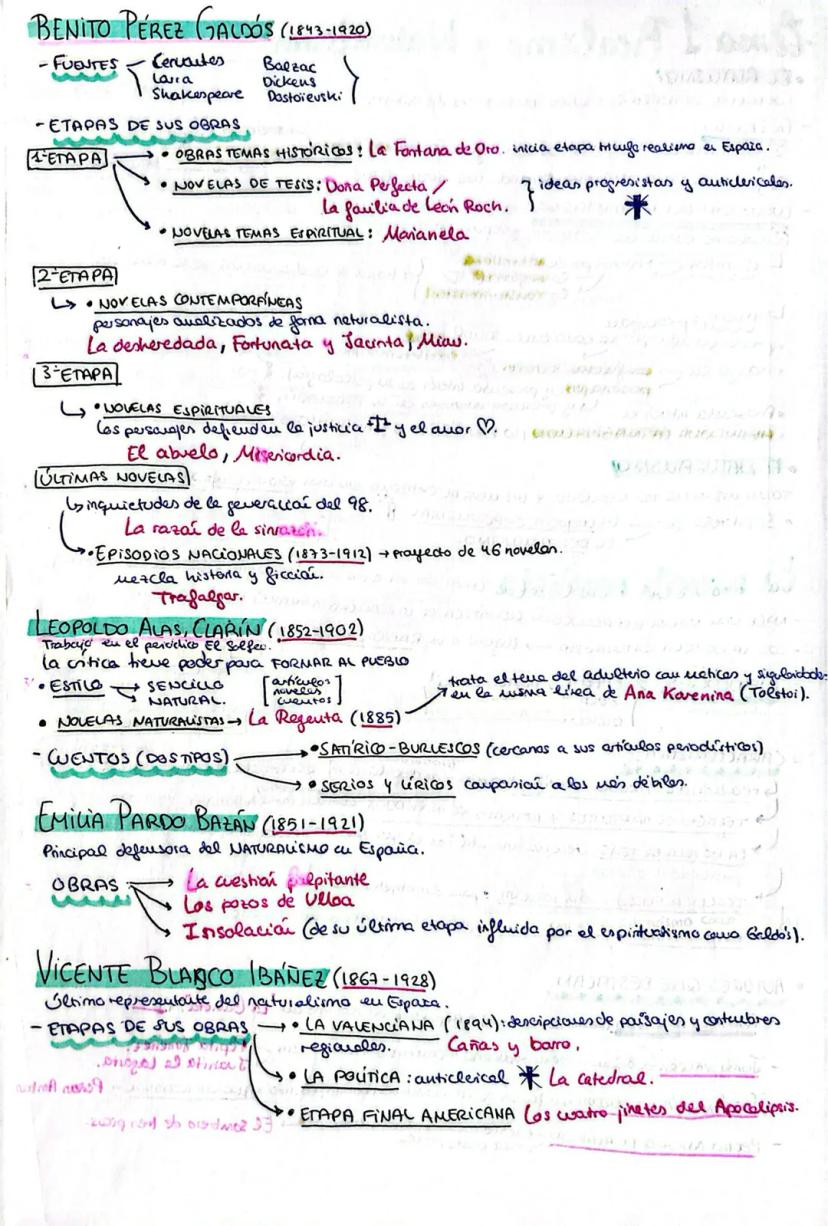 BENITO PÉREZ GALDÓS (1843-1920)
- FUENTES
Cervantes Balzac
Larra Dickens
Shakespeare Dostoievski
- ETAPAS DE SUS OBRAS
1ª ETAPA
• OBRAS TEMAS HISTÓRICOS: La Fontana de Oro. inicia etapa triunfo realismo en España.
• NOVELAS DE TESIS: Doña Perfecta / ideas progresistas y anticlericales.
La familia de León Roch.
• NOVELAS TEMAS ESPIRITUAL: Marianela
2ª ETAPA
• NOVELAS CONTEMPORÁNEAS
personajes analizados de forma naturalista.
La desheredada, Fortunata y Jacinta, Miau.
3ª ETAPA
• NOVELAS ESPIRITUALES
Los personajes defienden la justicia y el amor ♡.
El abuelo, Misericordia.
ÚLTIMAS NOVELAS
inquietudes de la generación del 98.
La razón de la sinrazón.
• EPISODIOS NACIONALES (1873-1912) → proyecto de 46 novelas.
mezcla historia y ficción.
Trafalgar.
LEOPOLDO ALAS, CLARÍN (1852-1902)
Trabajó en el periódico El Solfeo.
La crítica tiene poder para FORMAR AL PUEBLO
• ESTILO → SENCILLO
NATURAL
[artículos
novelas
cuentos]
• NOVELAS NATURALISTAS → La Regenta (1885)
trata el tema del adulterio con matices y
en la misma línea de Ana Karenina (Tolstoi).
- CUENTOS (DOS TIPOS)
• SATÍRICO-BURLESCOS (cercanos a sus artículos periodísticos)
• SERIOS Y LÍRICOS compasión a los más débiles.
EMILIA PARDO BAZÁN (1851-1921)
Principal defensora del NATURALISMO en España.
OBRAS
La cuestión palpitante
Los pazos de Ulloa
Insolación (de su última etapa influida por el espiritualismo como Galdós).
VICENTE BLASCO IBÁÑEZ (1867-1928)
Último representante del naturalismo en España.
- ETAPAS DE SUS OBRAS
• LA VALENCIANA (1894): descripciones de paisajes y costumbres
regionales. Cañas y barro.
• LA POLÍTICA: anticlerical La catedral.
• ETAPA FINAL AMERICANA Los cuatro jinetes del Apocalipsis.